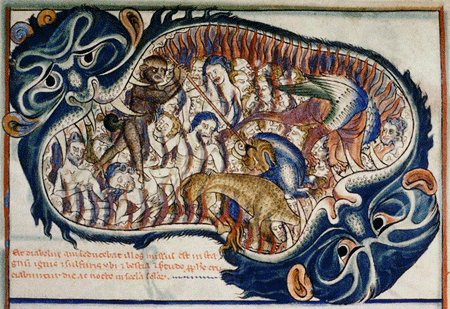 Et diabolus qui seducebat illos missus est in sta
gnū ignis ⁊ sulfuris ubi ⁊ bestia ⁊ pseudo pphe cru
ciabuntur die ac nocte in secla